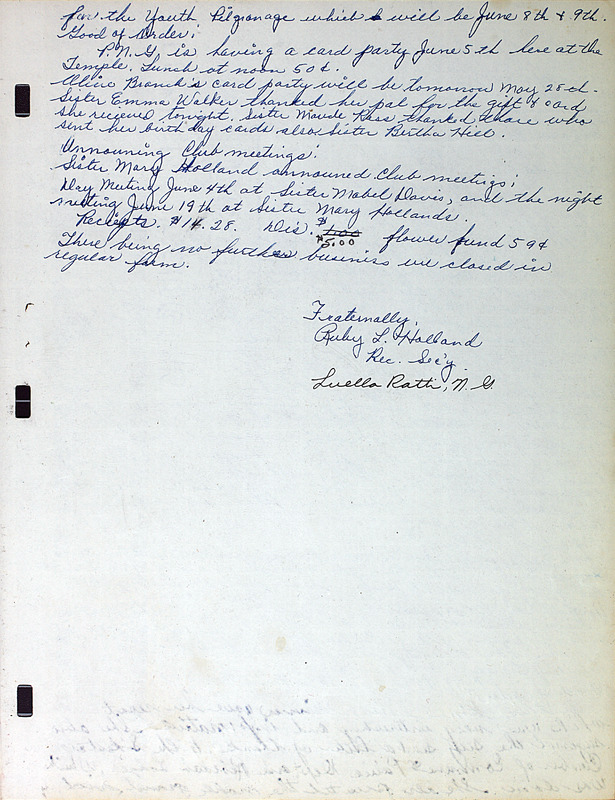 for the Youth Pilgrimage which will be June 8th & 9th.
Good of Order:
P.N.G. is having a card party June 5th here at the
Temple. Lunch at noon 50¢.
Olive Branch's card party will be tomorrow May 28th.
Sister Emma Walker thanked her pal for the gift & card
she received tonight. Sister Maude Ross thanked those who
sent her birthday cards also Sister Bertha Hill.
Announcing Club meetings:
Sister Mary Holland announced Club meetings;
Day Meeting June 4th at Sister Mabel Davis, and the night
meeting June 19th at Sister Mary Hollands.
Reciepts. $14.28. Dis. $5.00 flower fund 59¢
There being no further business we closed in
regular form.
Fraternally,
Ruby L. Holland
Rec. Sec'y.
Luella Ratti, N.G.